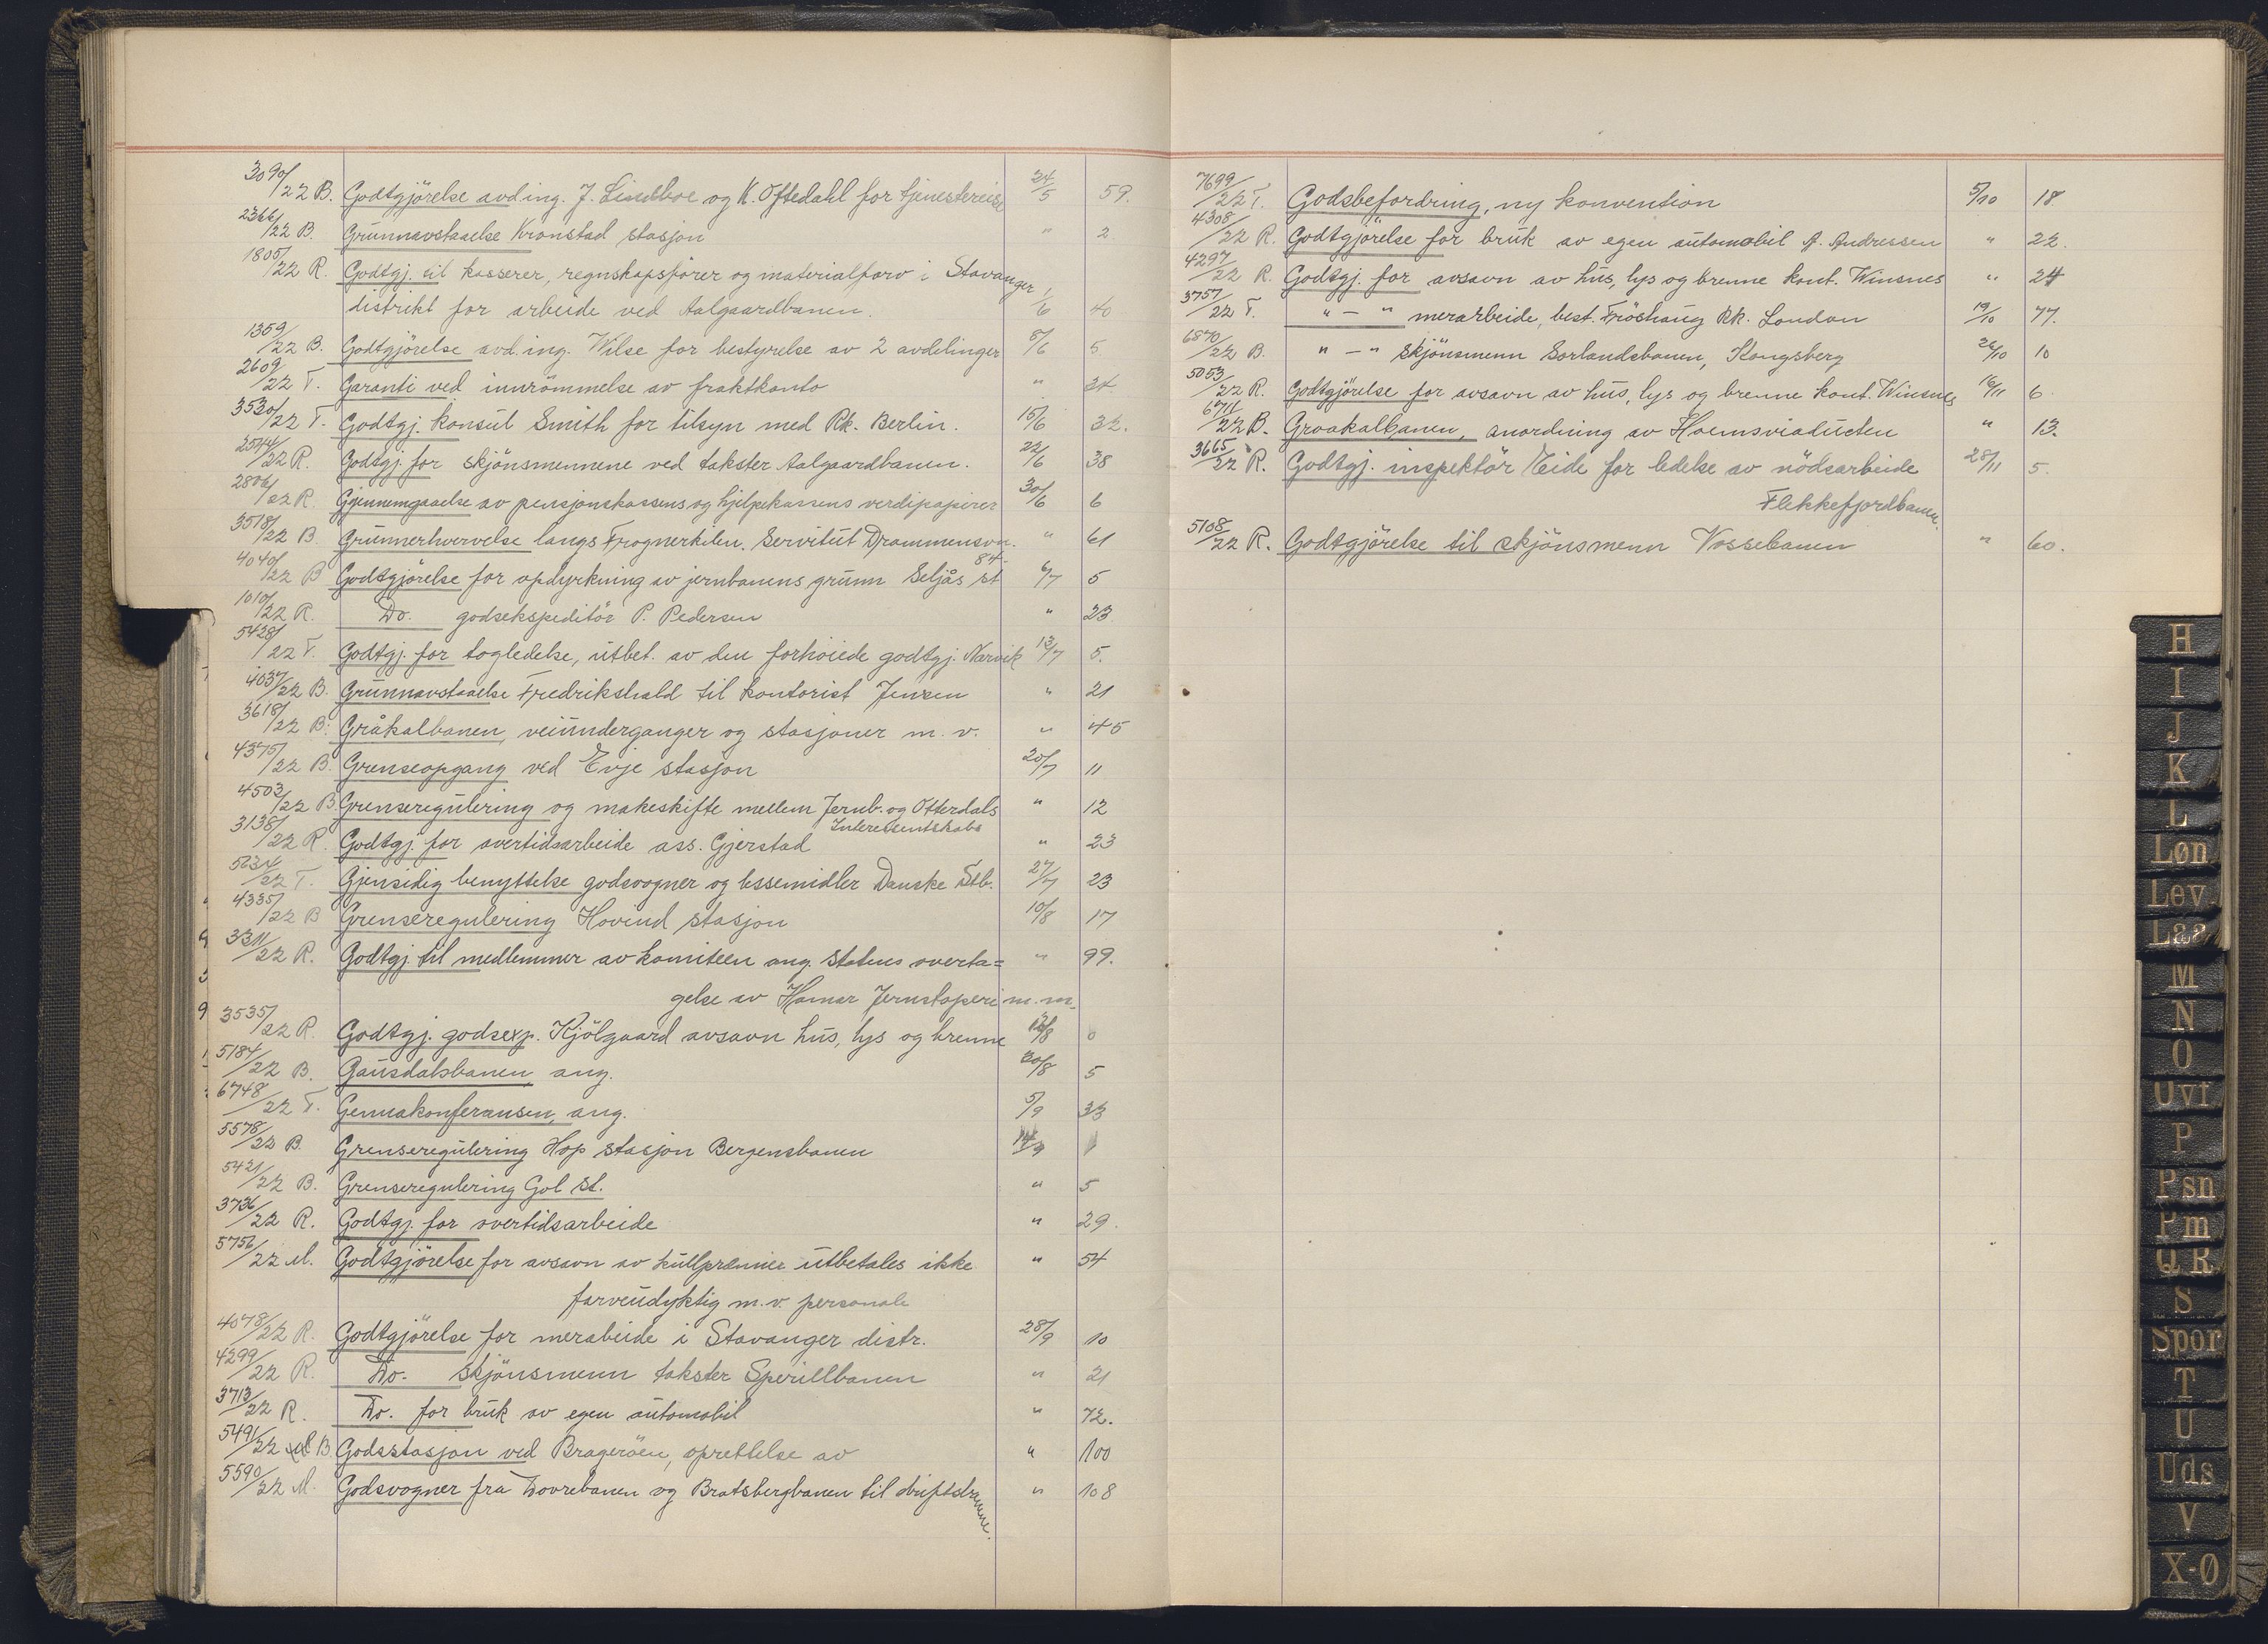 3090/22 B. Godtgjörelse avd.ing. J. Lindboe og K. Oftedahl for tjenestereise 24/5 59.
2366/22 B. Grunnavstaaelse Kronstad stasjon " 2
1805/22 R. Godtgj. til kasserer, regnskapsförer og materialforv i Stavanger
distrikt for arbeide ved Aalgaardbanen. 1/6 40
1359/22 B. Godtgjörelse avd.ing. Wilse for bestyrelse av 2 avdelinger 8/6 5
2609/22 T. Garanti ved innrömmelse av fraktkonto " 34.
3530/22 T. Godtgj. konsul Smith for tilsyn med Rk. Berlin. 15/6 32.
2544/22 R. Godtgj. for skjönsmennene ved takster Aalgaardbanen. 22/6 38
2806/22 R. Gjennemgaaelse av pensjonskassens og hjelpekassens verdipapirer 30/6 6
3518/22 B. Grunnerhvervelse langs Frognerkilen. Servitut Drammensvn. 84. " 61
4040/22 B Godtgjörelse for opdyrkning av jernbanens grunn Seljås st 6/7 5
1010/22 R. Do. godsekspeditör P. Pedersen " 23
5428/22 T. Godtgj. for togledelse, utbet. av den forhöiede godtgj. Narvik 13/7 5.
4037/22 B. Grunnavstaaelse Fredrikshald til kontorist Jensen " 21
3618/22 B. Gråkalbanen, veiunderganger og stasjoner m. v. " 45
4375/22 B. Grenseopgang ved Evje stasjon 20/7 11
4503/22 B. Grenseregulering og makeskifte mellem Jernb. og Otterdals " 12
Interessentskabs
3138/22 R. Godtgj. for overtidsarbeide ass. Gjerstad " 23
5634/22 T. Gjensidig benyttelse godsvogner og lessemidler Danske Stb. 27/7 23
4335/22 B Grenseregulering Hovind stasjon 10/8 17
3311/22 R. Godtgj. til medlemmer av komiteen ang. Statens overta= " 99.
gelse av Hamar Jernstøperi m. m.
3535/22 R. Godtgj. godsexp. Kjölgaard avsavn hus, lys og brenne
5184/22 B. Gausdalsbanen, ang. 30/8 5
6748/22 T. Genuakonferansen, ang. 5/9 33
5578/22 B. Grenseregulering Hop stasjon Bergensbanen 14/9
5421/22 B. Grenseregulering Gol st. " 5
3736/22 R. Godtgj. for overtidsarbeide " 29.
5756/22 M. Godtgjörelse for avsavn av kullpremie utbetales ikke " 54
farveudyktig m.v. personale
4078/22 R. Godtgjörelse for merabeide i Stavanger distr. 28/9 10
4299/22 R. Do. skjönsmenn takster Sperillbanen " 21
3713/22 R. Do. for bruk av egen automobil " 72.
5491/22 B Godsstasjon ved Brageröen, oprettelse av " 100
5590/22 M. Godsvogner fra Dovrebanen og Bratsbergbanen til driftsbanene. " 108
7699/22 T. Godsbefordring, ny konvention 5/10 18
4308/22 R. Godtgjörelse for bruk av egen automobil A. Andressen " 22.
4297/22 R. Godtgj. for avsavn av hus, lys og brenne kont. Winsnes " 24
3757/22 T. " - " merarbeide, best. Fröshaug Rk. London 19/10 77.
6870/22 B. " - " skjönsmenn Sorlandsbanen, Kongsberg 26/10 10
5053/22 R. Godtgjörelse for avsavn av hus, lys og brenne kont. Winsnes 16/11 6
6711/22 B. Graakalbanen, anordning av Hoemsviaducten " 13.
3665/22 R. Godtgj. inspektör Eide for ledelse av nödsarbeide 28/11 5.
Flekkefjordbanen.
5108/22 R. Godtgjörelse til skjönsmenn Vossebanen " 60.
H
I
J
K
L
Løn
Lev
Laa
M
N
O
Ovf
P
Psn
Pm
Q R
S
Spor
T
U
Uds
V
X-Ø